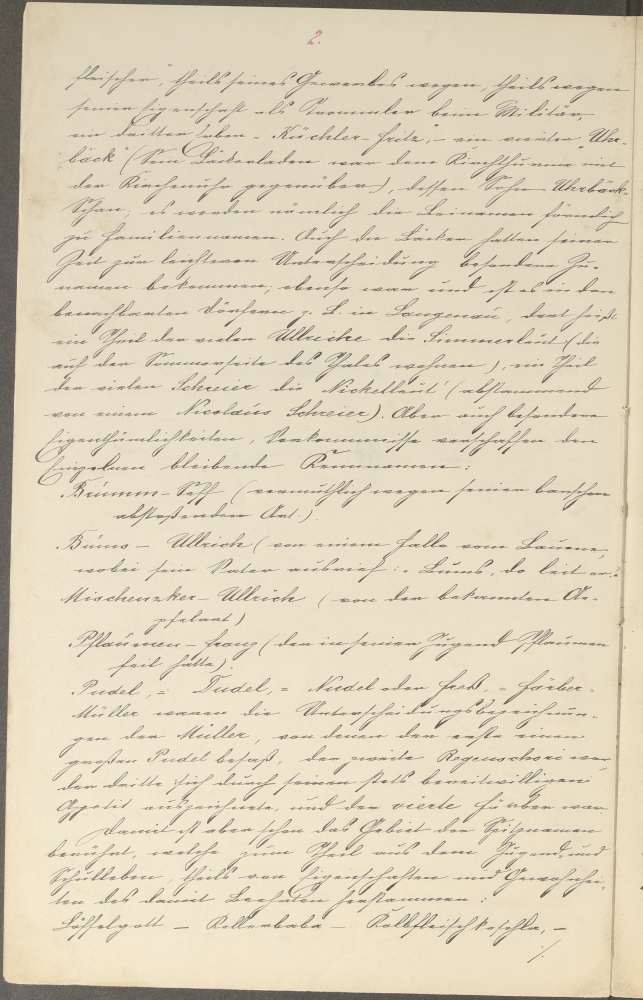 2.
fleischer", theils seines Gewerbes wegen, theils wegen
seiner Eigenschaft als Trommler beim Militär,
ein dritter eben - Küchler-Fritz", - ein vierter "Uhr-
bäck" (Sein Bäckerladen war dem Kirchthurme mit
der Kirchenuhr gegenüber), dessen Sohn Uhrbäck-
Schan; es werden nämlich die Beinamen förmlich
zu Familiennamen. Auch die Bäcker hatten seiner
Zeit zur leichteren Unterscheidung besondere Zu-
namen bekommen; ebenso war und ist es in den
benachbarten Dörfern z. B. in Langenau, dort heißt
ein Theil der vielen Ullriche die Simmerleut (die
auf der Sommerseite des Thales wohnen), ein Theil
der vielen Schreier die Nickelleut' (abstammend
von einem Nicolaus Schreier). Aber auch besondere
Eigenthümlichkeiten, Vorkommnisse verschaffen den
Einzelnen bleibende Beinamen:
Brumm-Seff (vermuthlich wegen seiner barschen
abstoßenden Art.)
Bums - Ullrich (von einem Falle vom Baume,
wobei sein Vater ausrief: "Bums, do leit er."
Mischenzker-Ullrich (von der bekannten Ae-
pfelart)
Pflaumen-Franz (der in seiner Jugend Pflaumen
feil hatte).
Pudel, = Dudel, = Nudel oder Freß, = Färber-
Müller waren die Unterscheidungsbezeichnun-
gen der Müller, von denen der erste einen
großen Pudel besaß, der zweite Regenschori war
der dritte sich durch seinen stets bereitwilligen
Appetit auszeichnete, und der vierte Färber war.
Damit ist aber schon das Gebiet der Spitznamen
berührt, welche zum Theil aus dem Jugend- und
Schulleben, theils von Eigenschaften und Gewohnhei-
ten des damit Beehrten herstammen:
Löffelgott - Kellerbaba - Kalbfleischkaschla, -
./.